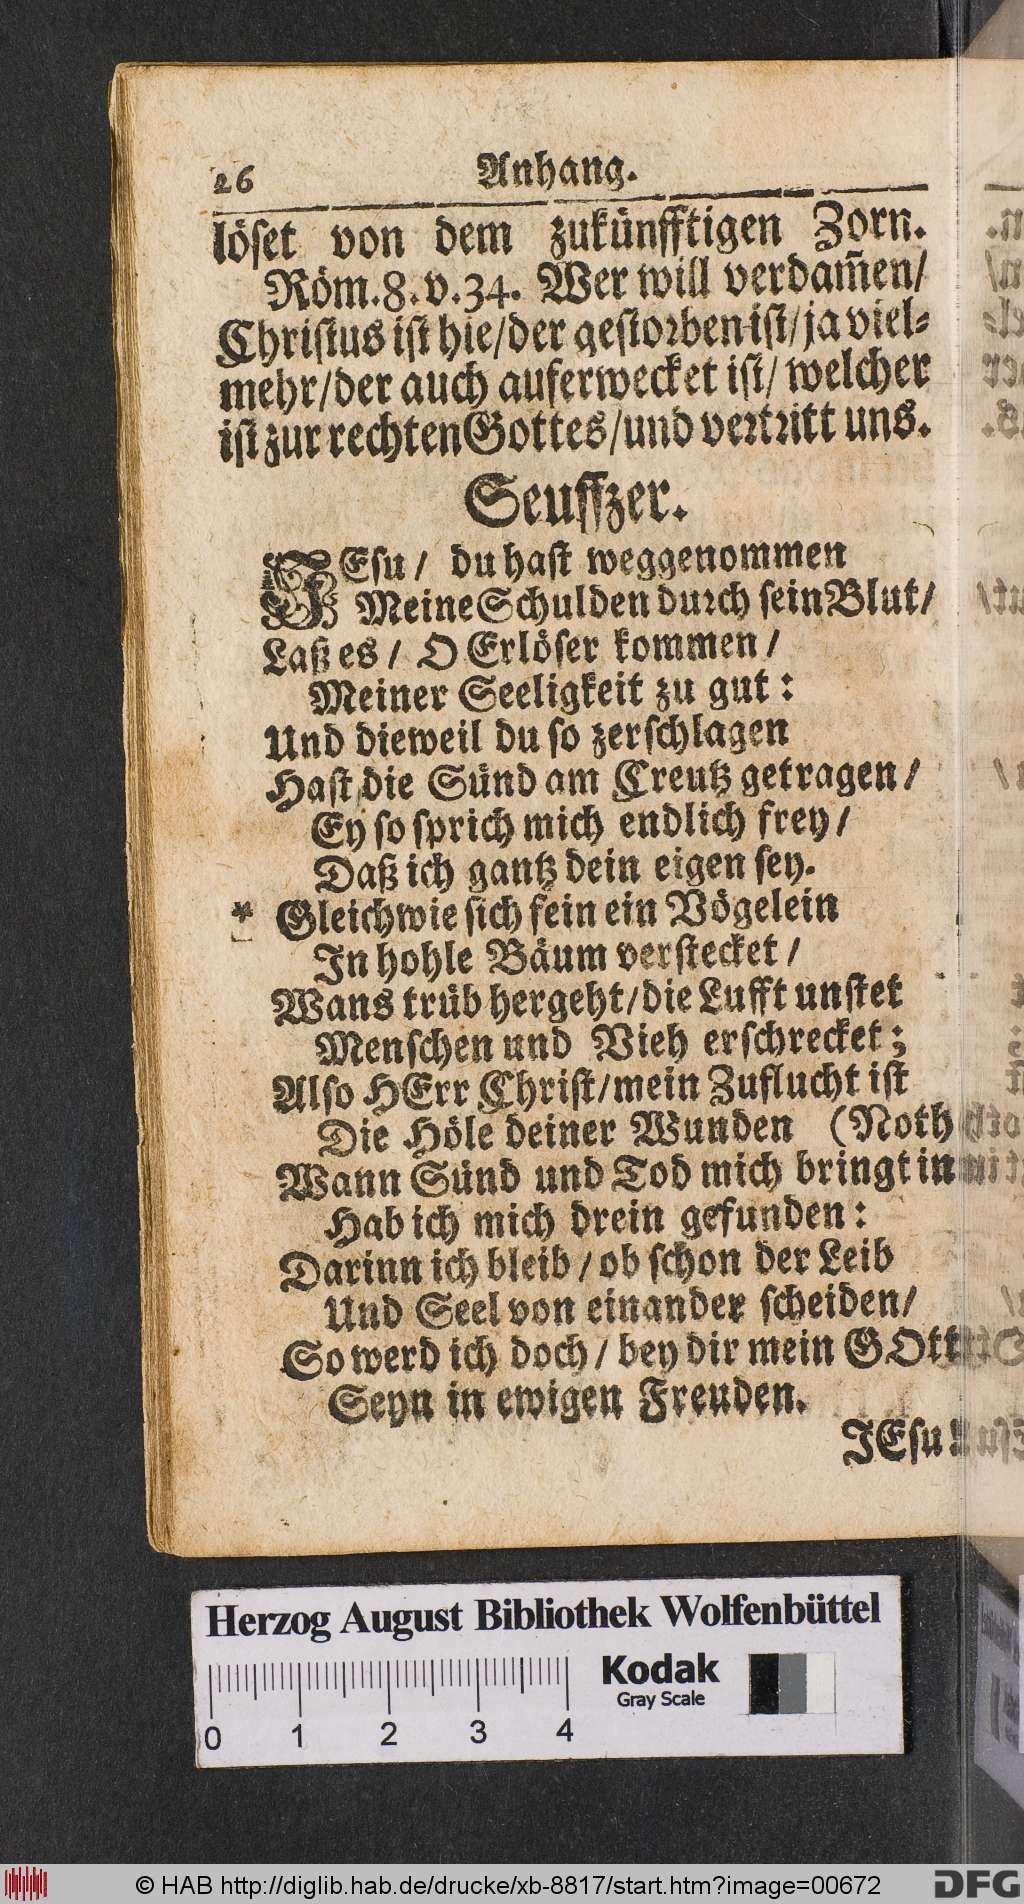 26 Anhang.
löset von dem zukünfftigen Zorn.
Röm. 8. v. 34. Wer will verdam̃en/
Christus ist hie/der gestorben ist/ja viel-
mehr/der auch auferwecket ist/ welcher
ist zur rechten Gottes/und vertritt uns.
Seuffzer.
JEsu / du hast weggenommen
Meine Schulden durch sein Blut/
Laß es / O Erlöser kommen /
Meiner Seeligkeit zu gut:
Und dieweil du so zerschlagen
Hast die Sünd am Creutz getragen/
Ey so sprich mich endlich frey/
Daß ich gantz dein eigen sey.
* Gleichwie sich fein ein Vögelein
In hohle Bäum verstecket /
Wans trüb hergeht/die Lufft unstet
Menschen und Vieh erschrecket;
Also HErr Christ/mein Zuflucht ist
Die Höle deiner Wunden (Noth
Wann Sünd und Tod mich bringt in
Hab ich mich drein gefunden:
Darinn ich bleib / ob schon der Leib
Und Seel von einander scheiden/
So werd ich doch / bey dir mein GOtt
Seyn in ewigen Freuden.
JEsu
Herzog August Bibliothek Wolfenbüttel
Kodak
Gray Scale
0 1 2 3 4
© HAB http://diglib.hab.de/drucke/xb-8817/start.htm?image=00672
DFG